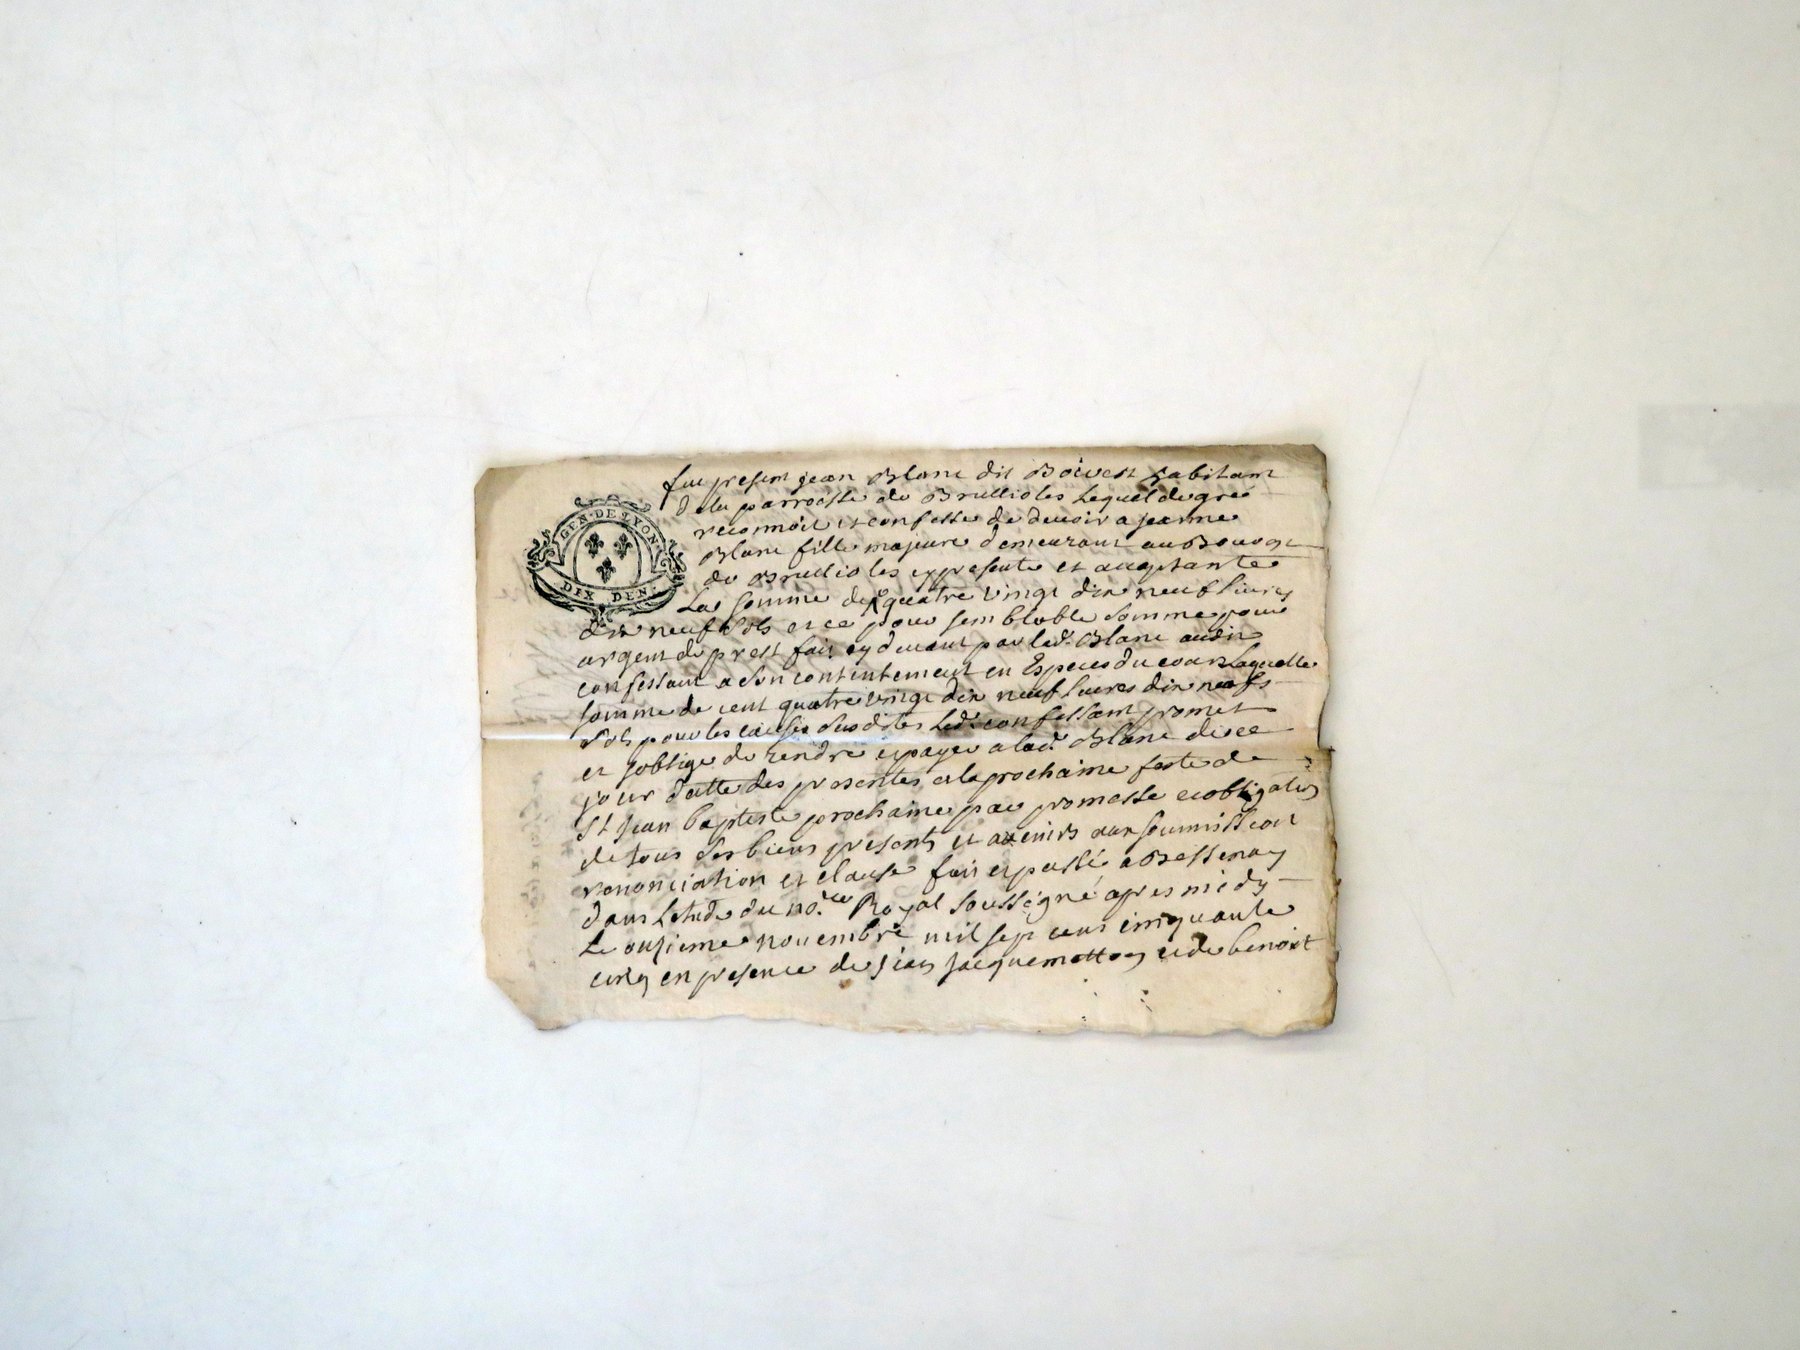 GEN·DE LYON·
DIX DEN.
fut present jean Blanc dit Boivest habitant
de la parroisse de Brullioles Lequel de gré
reconnoit et confesse de devoir a jeanne
Blanc fille majeure demeurant au Bourg
de Brullioles cy presente et acceptante
La somme de quatre vingt dix neuf livres
dix neuf sols et ce pour semblable somme pour
argent de prest fait cy devant par lad. Blanc audit
confessant a son contentement en Especes du cours Laquelle
somme de cent quatre vingt dix neuf livres dix neufs
sols pour les causes susdites Led. confessant promet
et soblige de rendre et payer a lad. Blanc dicce
jour datte des presentes a la prochaine feste de
St jean baptiste prochaine par promesse et obligation
de tous ses biens presents et avenirs aux soumission
renonciation et clause fait et passé a Bessenay
dans Letude du no.re Royal soussigné apres midy
Le onzieme novembre mil sept cens cinquante
cinq en presence de jean jacquemetton et de benoist